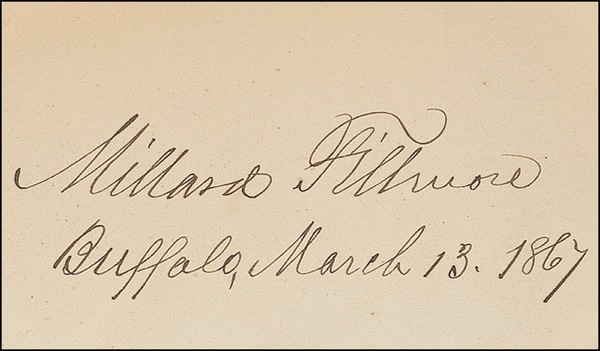 Millard Fillmore
Buffalo, March 13. 1867